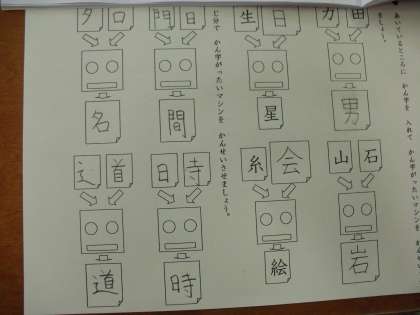 あいているところに かん字を 入れて かん字がったいマシンを
ましょう。
力 田
男
生 日
星
山 石
岩
糸 会
絵
じ分で かん字がったいマシンを かんせいさせましょう。
門 日
間
夕 口
名
日 寺
時
辶 道
道